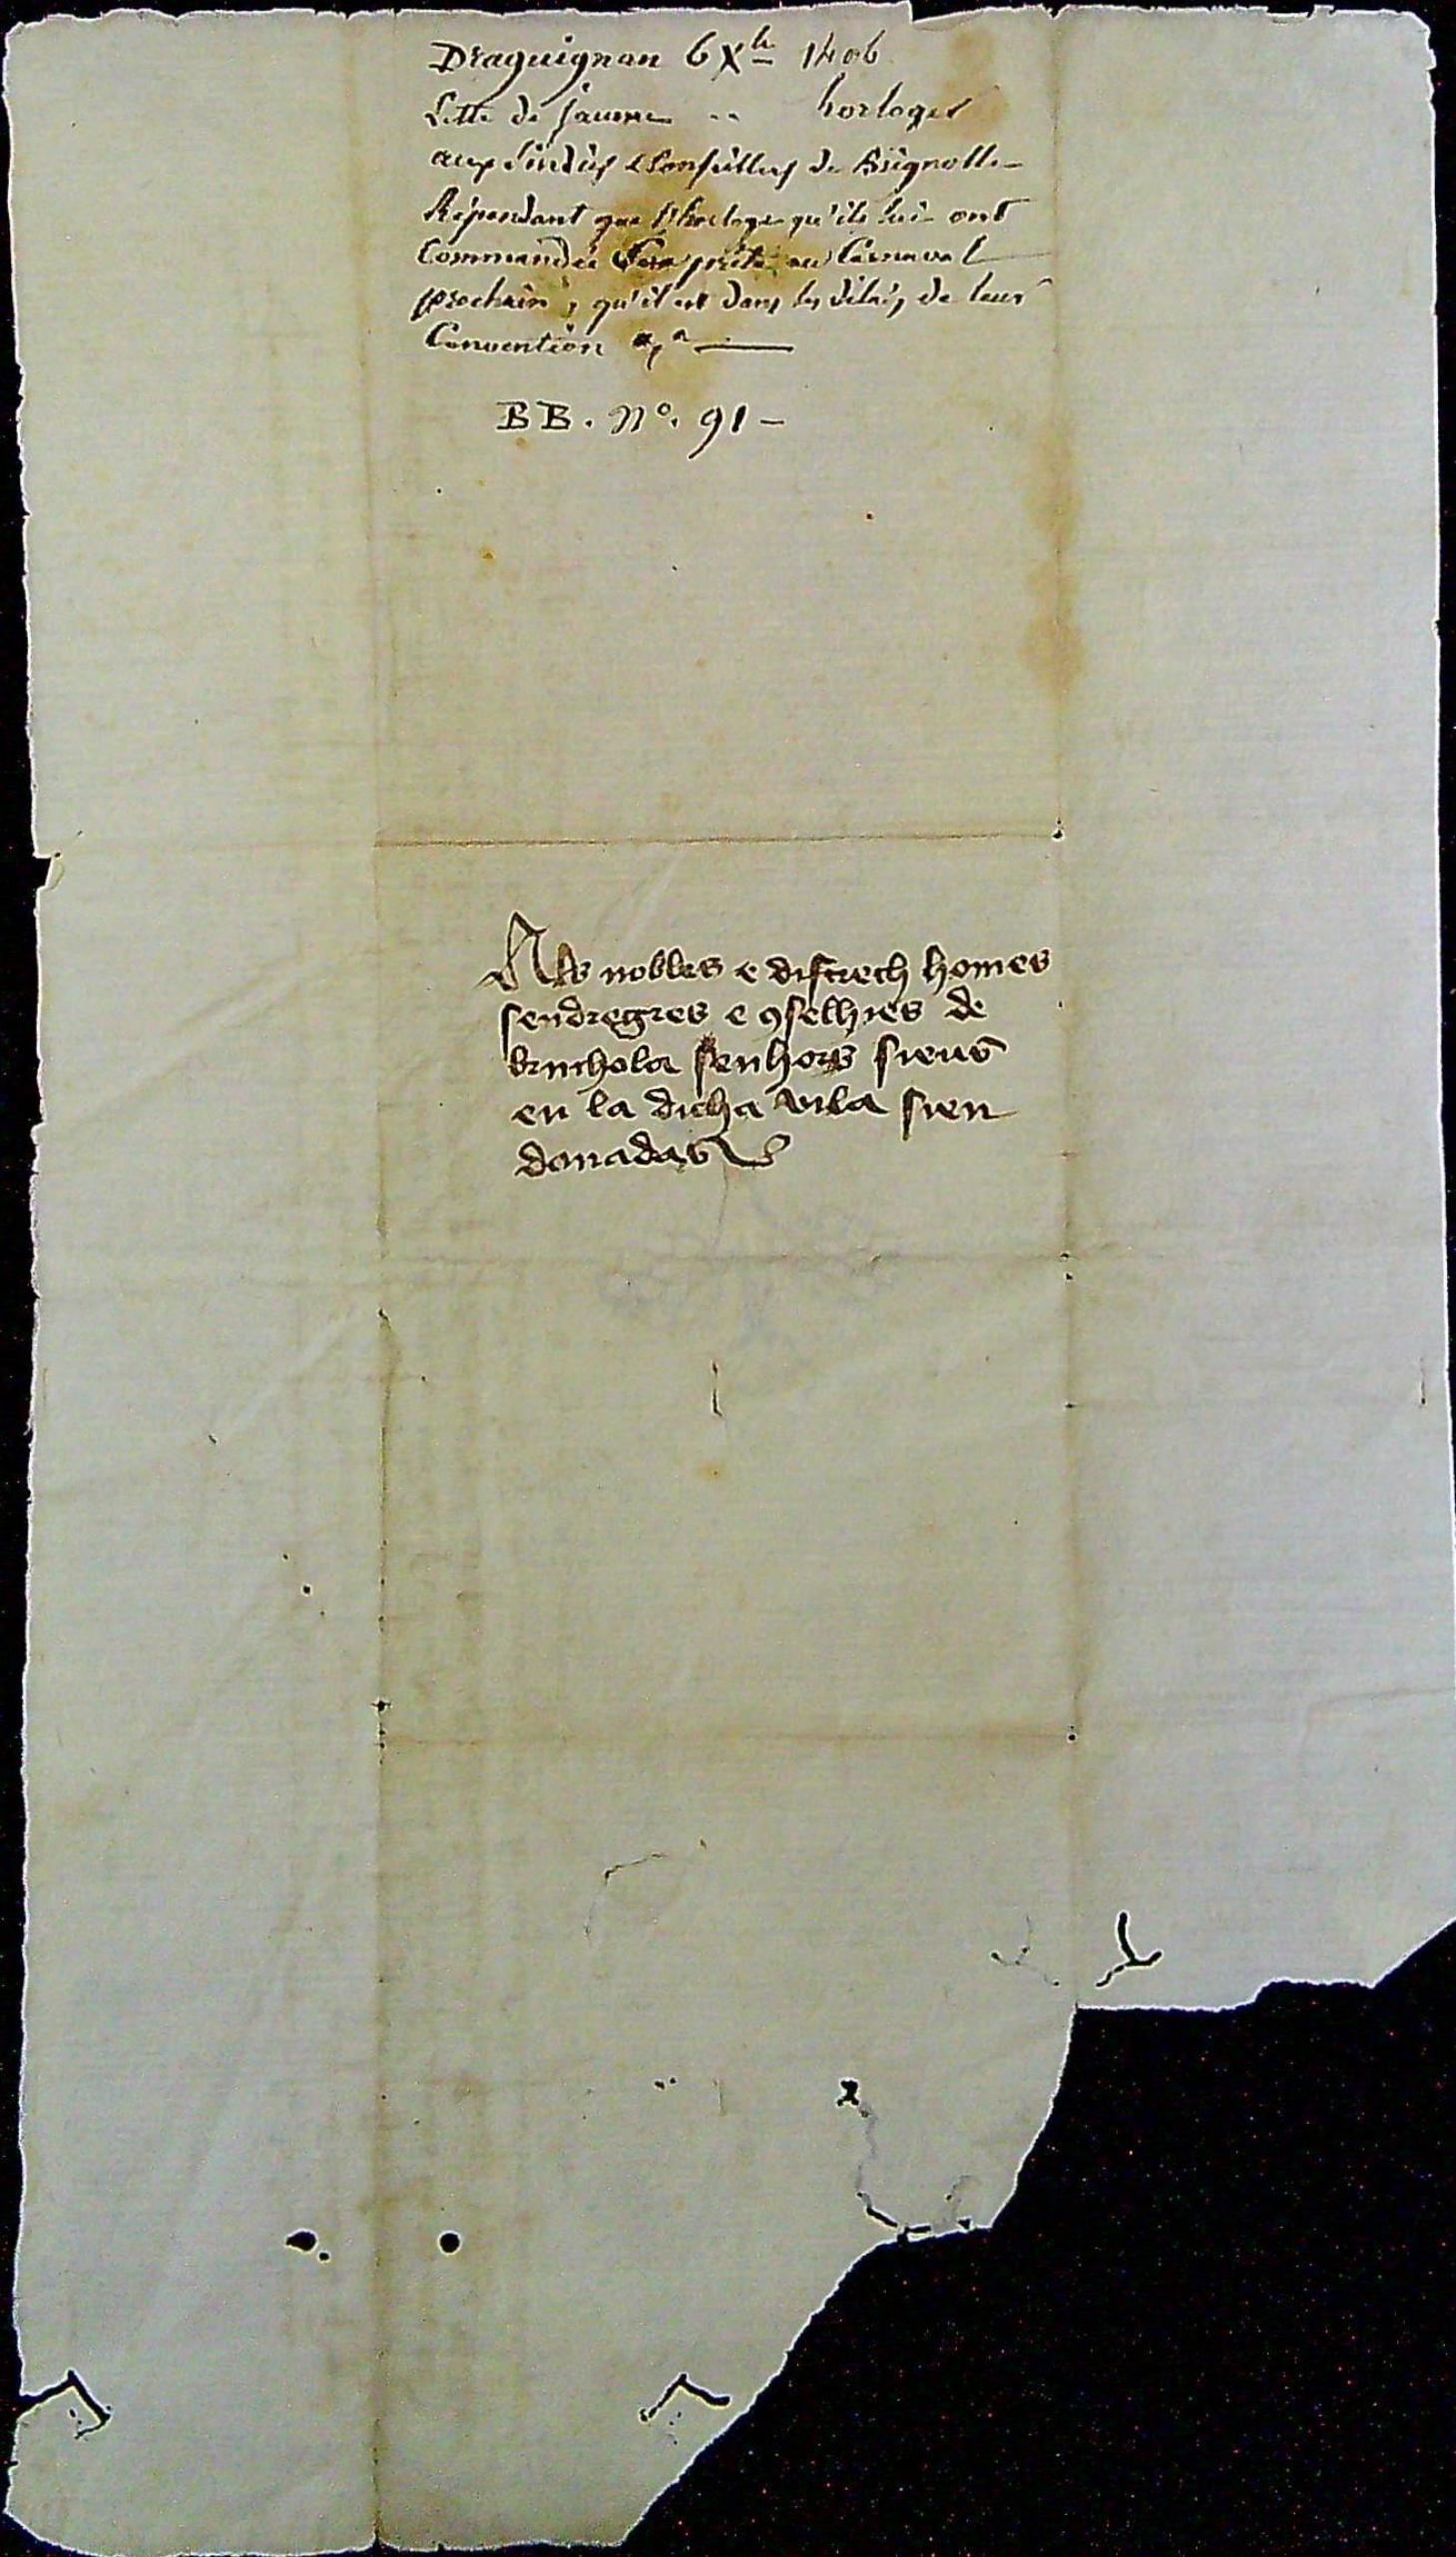 Draguignan 6 Xbre 1406
Lettre de Jaume .. horloger
aux Sindics & Conseillers de Brignolle -
Répondant que l'horloge qu'ils lui ont
Commandée sera prête au Carnaval
prochain, qu'il est dans les délais de leur
Convention &a
BB. N°. 91 -
Als nobles e discrech homes
sendegues e 9selhies de
brinhola senhors sieus
en la dicha vila sien
donadas